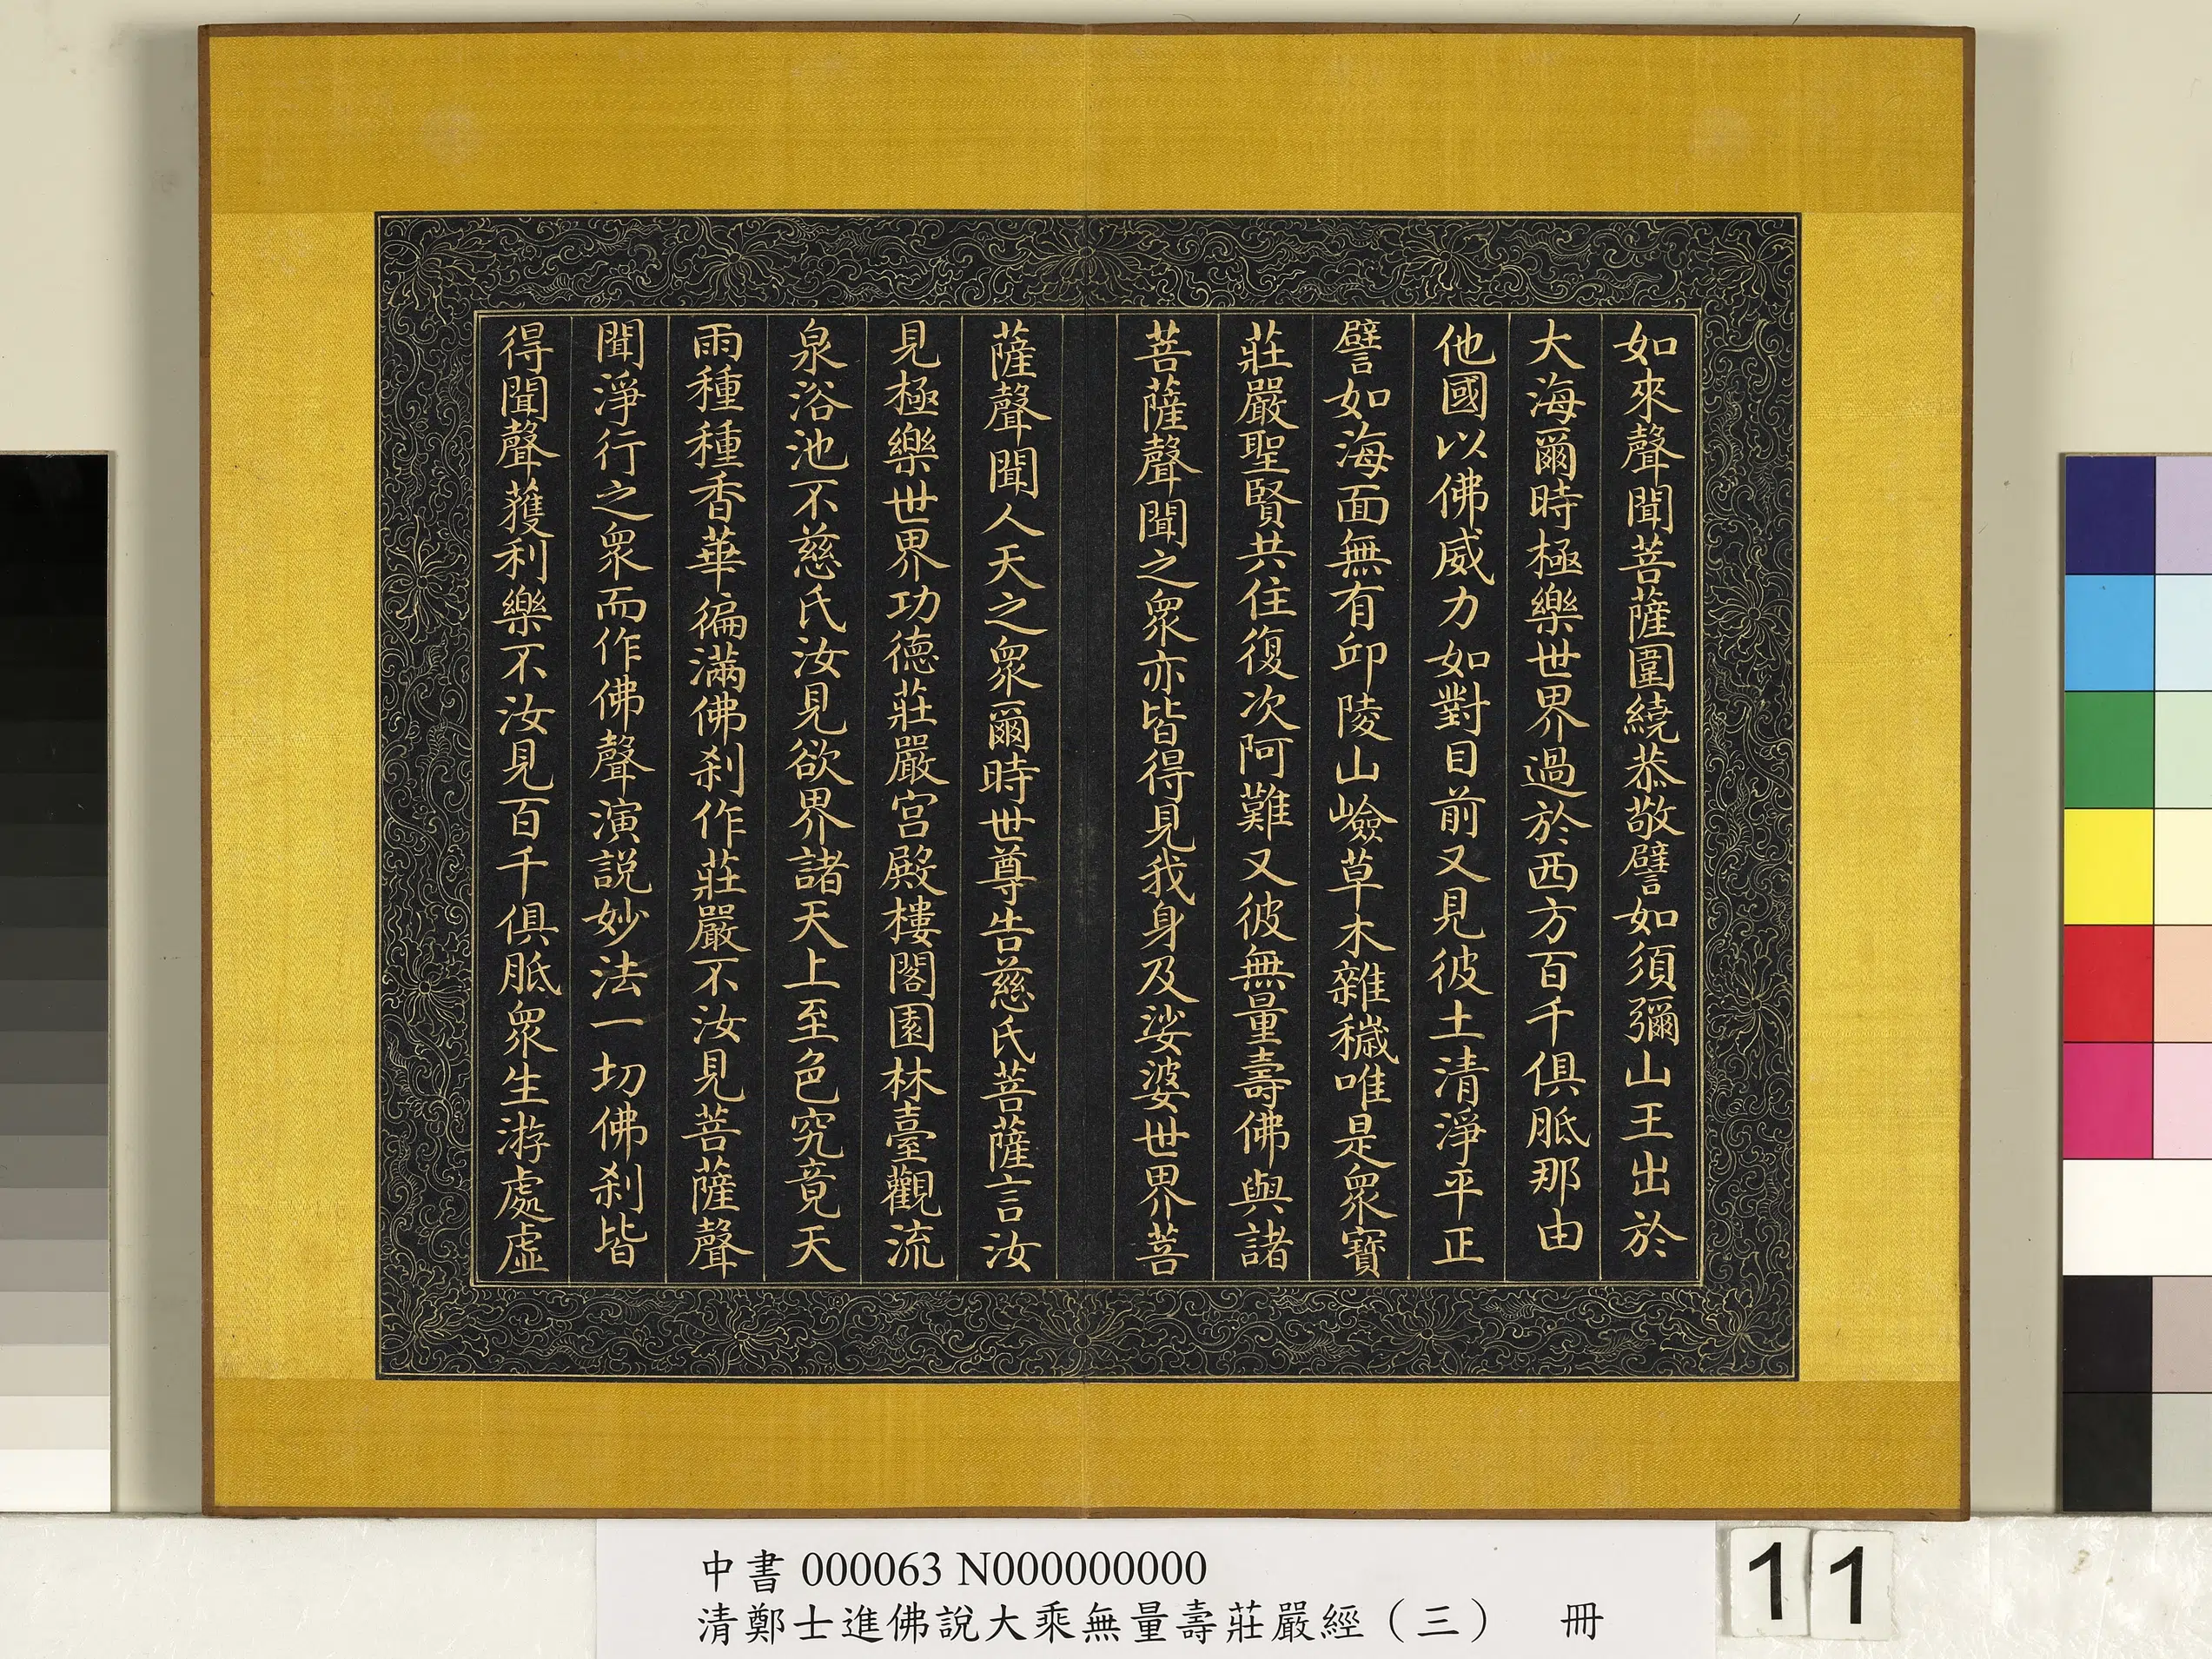 如來聲聞菩薩圍繞恭敬譬如須彌山王出於
大海爾時極樂世界過於西方百千俱胝那由
他國以佛威力如對目前又見彼土清淨平正
譬如海面無有邱陵山嶮草木雜穢唯是眾寶
莊嚴聖賢共住復次阿難又彼無量壽佛與諸
菩薩聲聞之眾亦皆得見我身及娑婆世界菩
薩聲聞人天之眾爾時世尊告慈氏菩薩言汝
見極樂世界功德莊嚴宮殿樓閣園林臺觀流
泉浴池不慈氏汝見欲界諸天上至色究竟天
雨種種香華徧滿佛剎作莊嚴不汝見菩薩聲
聞淨行之眾而作佛聲演説妙法一切佛剎皆
得聞聲獲利樂不汝見百千俱胝眾生游處虛
中書 000063 N000000000
清鄭士進佛說大乘無量壽莊嚴經（三） 冊
11